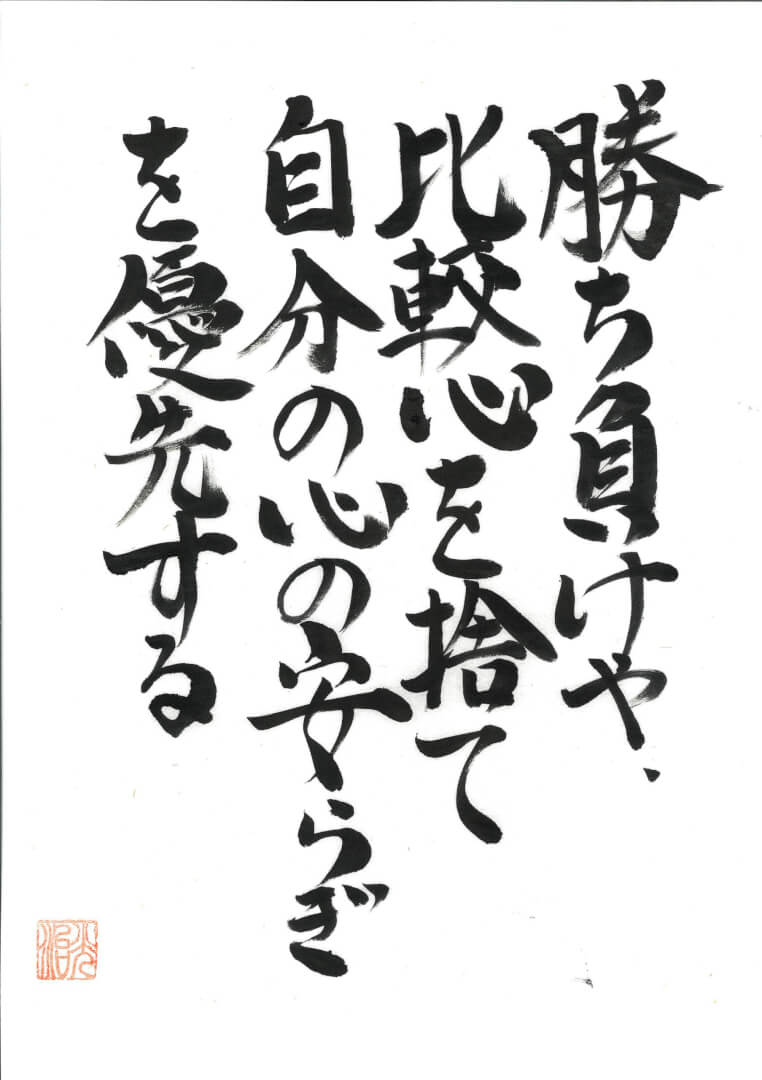 勝ち負けや、
比較心を捨て
自分の心の安らぎ
を優先する